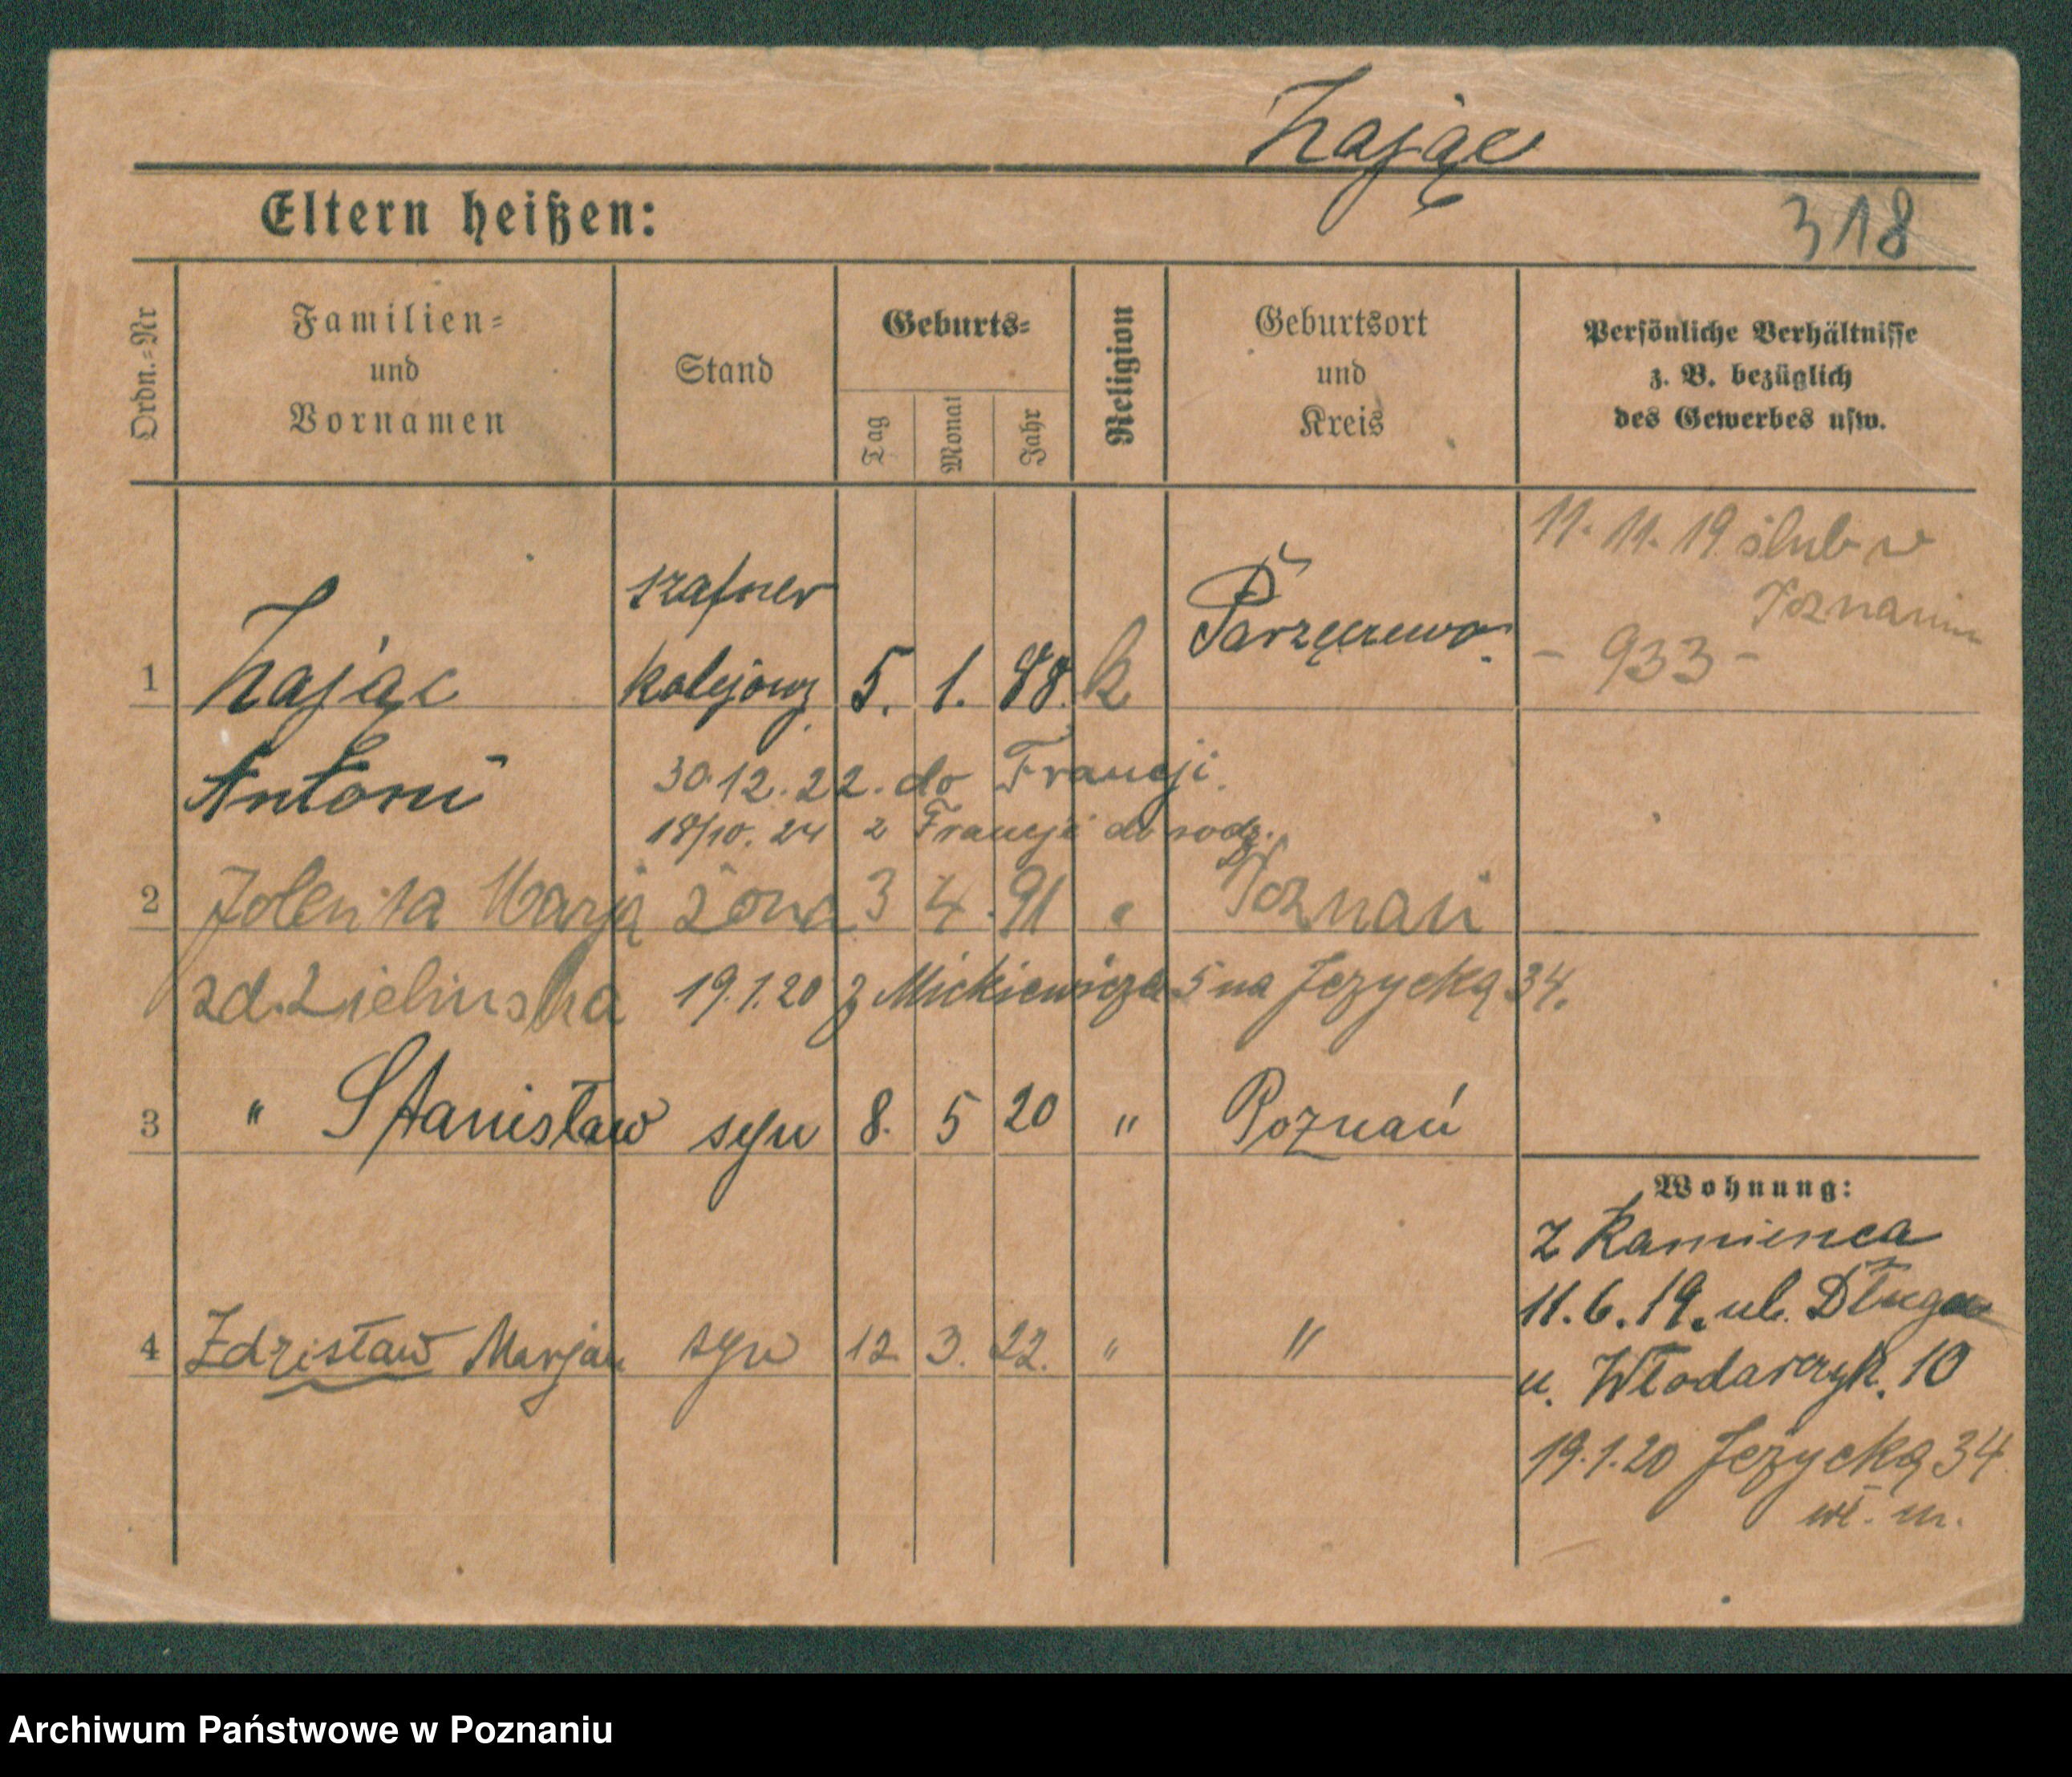 Zając
Eltern heißen:
318
Ordn.=Nr
Familien=
und
Vornamen
Stand
Geburts=
Tag
Monat
Jahr
Religion
Geburtsort
und
Kreis
Persönliche Verhältnisse
z. B. bezüglich
des Gewerbes usw.
11. 11. 19 ślub w
Poznaniu
- 933 -
1 Zając kolejowy 5. 1. 88. k
Antoni 30.12.22. do Francji.
18/10. 24 z Francji do rodz.
2 Jolenta Marja żona 3 4. 91 " Poznań
zd. Zielinska 19.1.20 z Mickiewicza 5 na Jeżycką 34.
3 " Stanisław syn 8. 5 20 " Poznań
Wohnung:
z Kamieńca
11.6.19. ul. Długa
u. Włodarczyk. 10
4 Zdzisław Marjan syn 12 3. 22. " "
19.1.20 Jeżycką 34
wł. m.
Archiwum Państwowe w Poznaniu